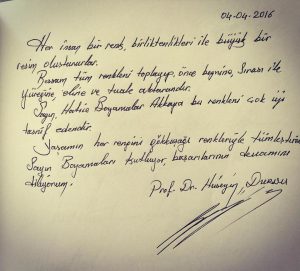 04-04-2016
Her insan bir renk, birliktelikleri ile büyük bir
resim oluştururlar.
Ressam tüm renkleri toplayıp, önce beynine, sırası ile
yüreğine eline ve tuale aktarandır.
Sayın Hatice Boyamalar Akkaya bu renkleri çok iyi
tasnif edendir.
Yaşamın her rengini gökkuşağı renkleriyle tümleştiren
Sayın Boyamaları kutluyor, başarılarının devamını
diliyorum.
Prof. Dr. Hüseyin